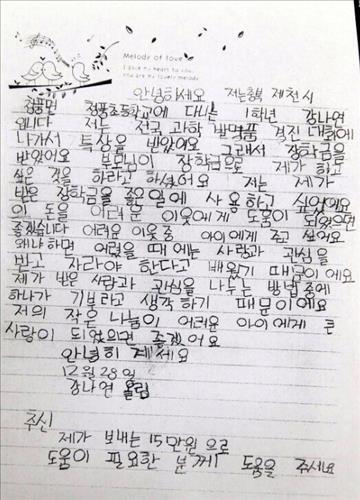 Melody of love
I give my heart to you.
You are my lovely melody
안녕하세요 저는충북 제천시
청풍면 청풍초등학교에 다니는 1학년 강나연
입니다 저는 전국 과학 발명품 경진 대회에
나가서 특상을 받았어요 그래서 장학금을
받았어요 부모님이 장학금으로 제가 하고
싶은 것을 하라고 하셨어요 저는 제가
받은 장학금을 좋은 일에 사용하고 싶었어요
이 돈을 어려운 이웃에게 도움이 되었으면
좋겠습니다 어려운 이웃중 아이에게 주고 싶어요
왜냐하면 어렸을 때에는 사랑과 관심을
받고 자라야 한다고 배웠기 때문이에요
제가 받은 사랑과 관심을 나누는 방법 중에
하나가 기부라고 생각하기 때문이에요
저의 작은 나눔이 어려운 아이에게 큰
사랑이 되었으면 좋겠어요
안녕히 계세요
12월 28일
강나연 올림
추신
제가 보내는 15만원으로
도움이 필요한 분께 도움을 주세요